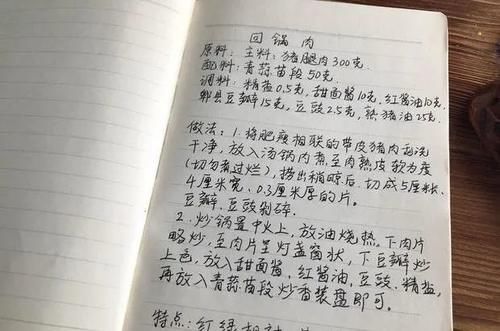 回锅肉
原料：主料：猪腿肉300克.
配料：青蒜苗段50克.
调料：精盐0.5克,甜面酱10克,红酱油10克,
郫县豆瓣15克,豆豉2.5克,熟猪油25克.
做法：1.将肥瘦相联的带皮猪肉刮洗
干净,放入汤锅内煮至肉熟皮软为度
(切勿煮过烂),捞出稍晾后.切成5厘米长.
4厘米宽,0.3厘米厚的片.
豆瓣、豆豉剁碎.
2.炒锅置中火上,放油烧热.下肉片
略炒,至肉片呈灯盏窝状,下豆瓣炒
上色,放入甜面酱,红酱油,豆豉,精盐,
再放入青蒜苗段炒香装盘即可.
特点:红绿相